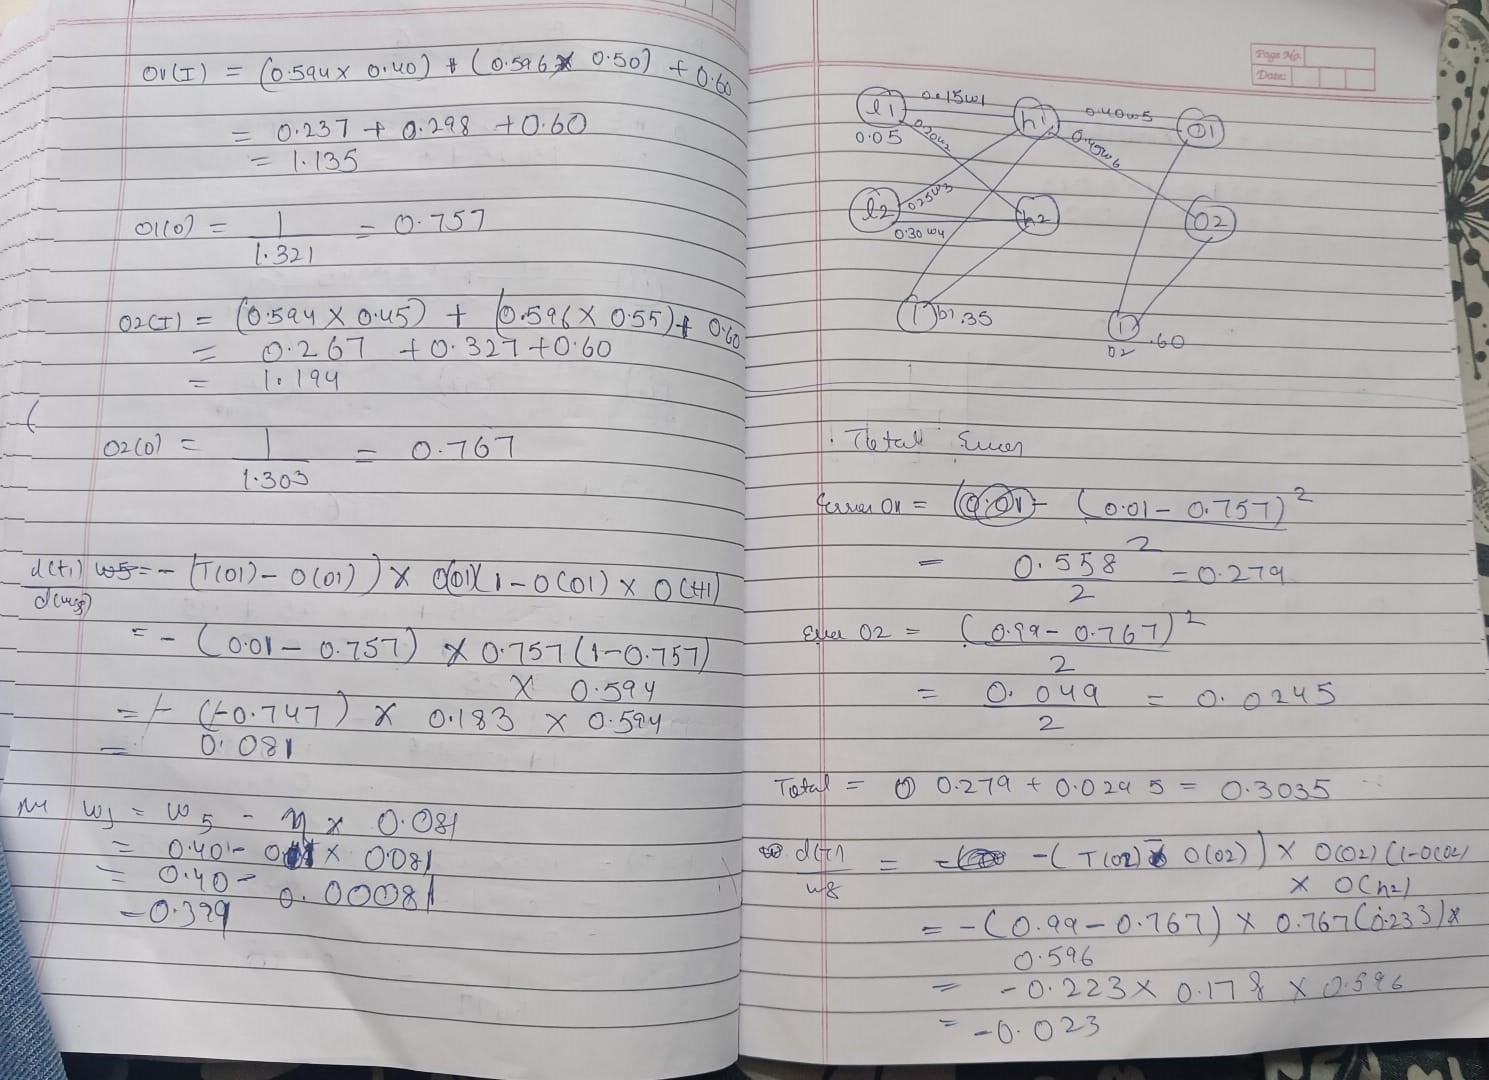 O1(I) = (0.594 x 0.40) + (0.596 x 0.50) + 0.60
= 0.237 + 0.298 + 0.60
= 1.135
O1(O) = 1/1.321 = 0.757
O2(I) = (0.594 x 0.45) + (0.596 x 0.55) + 0.60
= 0.267 + 0.327 + 0.60
= 1.194
O2(O) = 1/1.303 = 0.767
= - (T(O1) - O(O1)) x O(O1)(1 - O(O1) x O(H1)
= - (0.01 - 0.757) x 0.757 (1 - 0.757)
x 0.594
= - (-0.747) x 0.183 x 0.594
= 0.081
W5 = W5 - η x 0.081
= 0.40 - x 0.081
= 0.40 - 0.00081
= 0.399
Page No.
Date:
l1 0.15w1 h1 0.40w5 O1
0.05 0.20w2 0.45w6
l2 0.25w3 h2 O2
0.30w4
1 b1 .35 1 .60
b2
Total Error
Error O1 = (0.01 - 0.757)²
= 0.558/2 = 0.279
Error O2 = (0.99 - 0.767)²/2
= 0.049/2 = 0.0245
Total = 0.279 + 0.0245 = 0.3035
w8 = -(T(O2) - O(O2)) x O(O2)(1-O(O2)
x O(h2)
= -(0.99 - 0.767) x 0.767(0.233) x
0.596
= -0.223 x 0.178 x 0.596
= -0.023